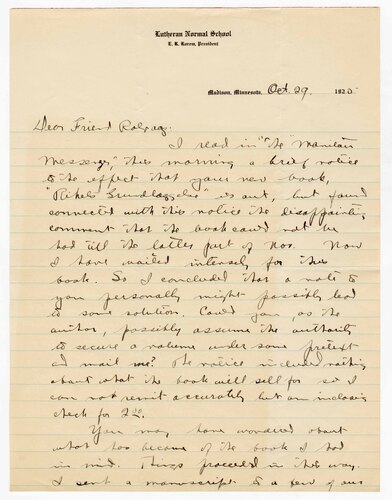 Lutheran Normal School
K. K. Lokem, President
Madison, Minnesota, Oct. 29, 1925
Dear Friend Rolvaag:
I read in "the Manitou
Messenger," this morning a brief notice
to the effect that your new book,
"Rikets Grundlæggelse" is out, but found
connected with this notice the disappointing
comment that the book could not be
had till the latter part of Nov. Now
I have waited intensely for this
book. So I concluded that a note to
you personally might possibly lead
to some solution. Could you, as the
author, possibly assume the authority
to secure a volume under some pretext
and mail me? The notice included nothing
about what the book will sell for so I
can not remit accurately but am inclosing
check for
You may have wondered about
what has become of the book I had
in mind. Things proceeded in this way.
I sent a manuscript to a few of our